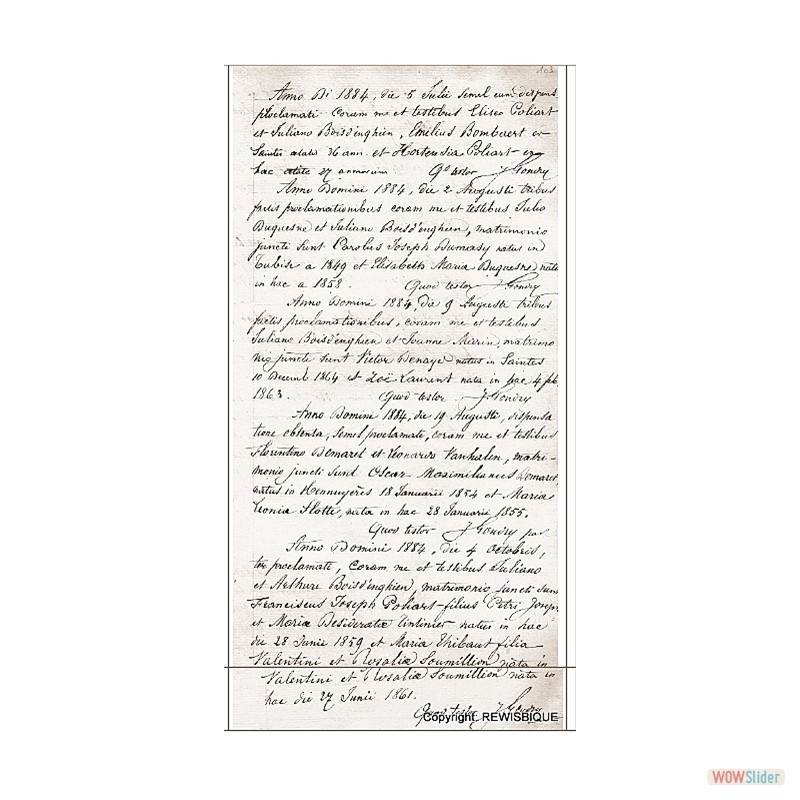 103
Anno Di 1884, die 5 Julii semel cum dispens
proclamati coram me et testibus Eliseo Poliart
et Juliano Boisd'enghien, Emilius Bombaert ex
Saintes aetatis 36 ann. et Hortensia Poliart ex
hac aetate 27 annorum. Qd testor J Gondry
Anno Domini 1884, die 2 Augusti tribus
factis proclamationibus coram me et testibus Julio
Duquesne et Juliano Boisd'enghien, matrimonio
juncti sunt Carolus Joseph Dumassy natus in
Tubise a 1849 et Elisabeth Maria Duquesne nata
in hac a 1858. Quod testor J Gondry
Anno Domini 1884, die 9 Augusti tribus
factis proclamationibus, coram me et testibus
Juliano Boisd'enghien et Joanne Marin, matrimo
nio juncti sunt Victor Denayer natus in Saintes
10 Decemb 1864 et Zoë Laurent nata in hac 4 feb
1863. Quod testor J Gondry
Anno Domini 1884, die 19 Augusti, dispensa
tione obtenta, semel proclamati, coram me et testibus
Florentino Demaret et Leonardo Vanhalen, matri-
monio juncti sunt Oscar Maximilianus Demaret,
natus in Hennuyères 18 Januarii 1854 et Maria
Leonia Flotte, nata in hac 28 Januarii 1855.
Quod testor J Gondry par
Anno Domini 1884, die 4 octobris,
ter proclamati, coram me et testibus Juliano
et Arthuro Boisd'enghien, matrimonio juncti sunt
Franciscus Joseph Poliart filius Petri Joseph
et Maria Desiderata Tintinier natus in hac
die 28 Junii 1859 et Maria Thibaut filia
Valentini et Rosaliæ Soumillion nata in
Valentini et Rosaliæ Soumillion nata in
hac die 27 Junii 1861.
Quod testor J Gondry
Copyright REWISBIQUE
WOWSlider